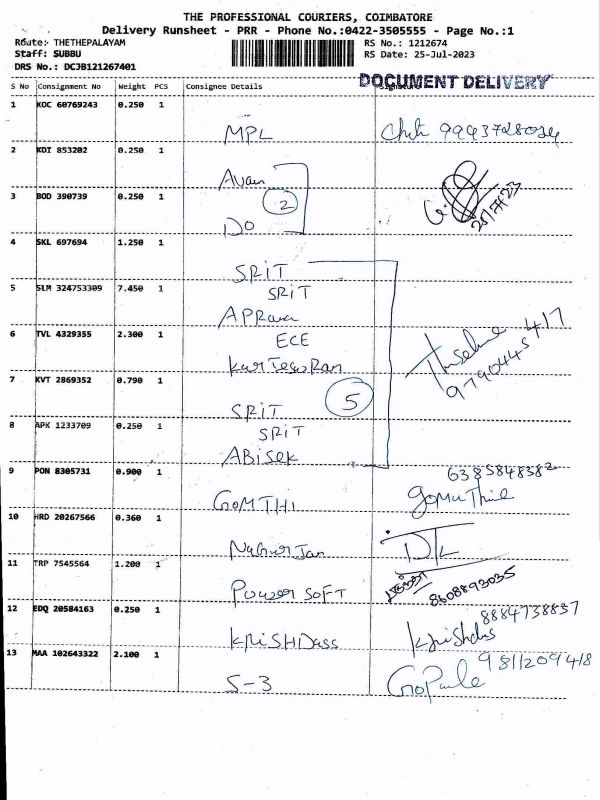 THE PROFESSIONAL COURIERS, COIMBATORE
Delivery Runsheet - PRR - Phone No.:0422-3505555 - Page No.:1
Route:- THETHEPALAYAM RS No.: 1212674
Staff: SUBBU RS Date: 25-Jul-2023
DRS No.: DCJB121267401
DOCUMENT DELIVERY
S No Consignment No Weight PCS Consignee Details Signature
1 KOC 60769243 0.250 1
MPL 9943728024
2 KDI 853202 0.250 1
Avan
3 BOD 390739 0.250 1
2
DO 25/7/23
4 SKL 697694 1.250 1
SRIT
5 SLM 324753309 7.450 1
SRIT
APRana
6 TVL 4329355 2.300 1
ECE
KarTesuRan
7 KVT 2869352 0.790 1
5
SRIT
8 APK 1233709 0.250 1
SRIT
ABiSek
9 PON 8305731 0.900 1 6385848382
GOMTHI gomuThie
10 HRD 20267566 0.360 1
NaburJan
11 TRP 7545564 1.200 1
Power SOFT 8608893035
12 EDQ 20584163 0.250 1 8884738837
KRISHDass Krishdas
13 MAA 102643322 2.100 1 9811209418
S-3